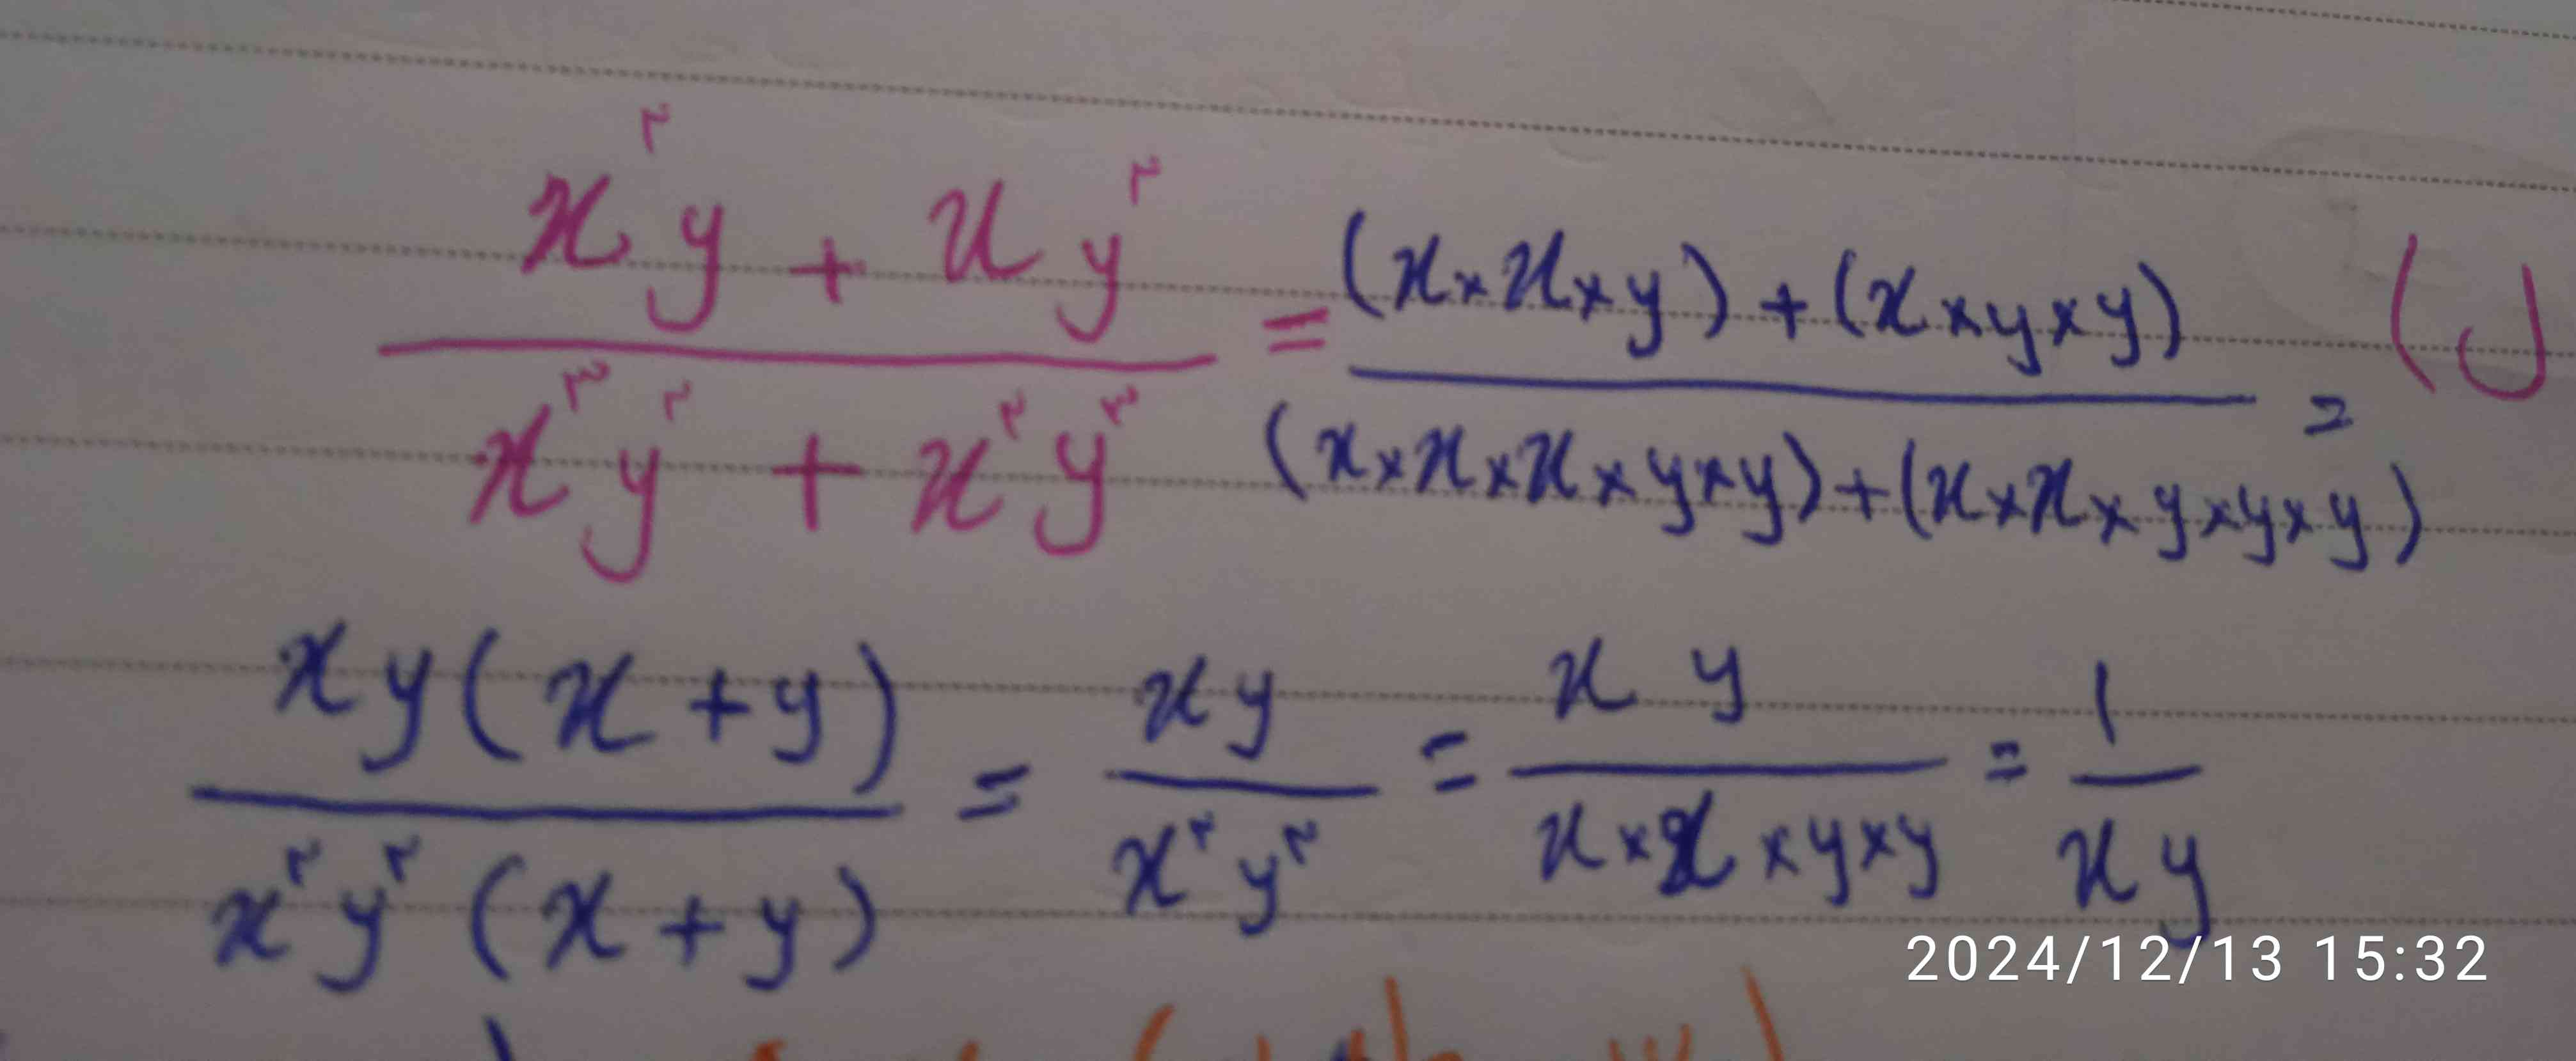 (ل
(x²y + xy²) / (x³y² + x²y³) = ((x×x×y) + (x×y×y)) / ((x×x×x×y×y) + (x×x×y×y×y)) =
xy(x+y) / x²y²(x+y) = xy / x²y² = xy / x×x×y×y = 1 / xy
2024/12/13 15:32